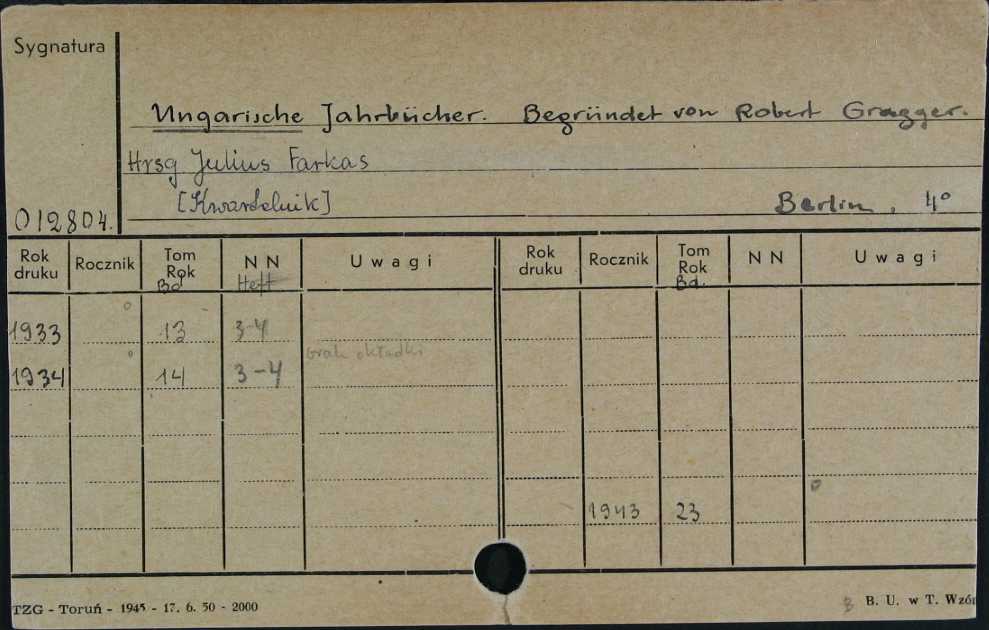 Sygnatura
Ungarische Jahrbücher. Begründet von Robert Gragger.
Hrsg Julius Farkas
[Kwartalnik] Berlin, 4°
012804.
Rok druku Rocznik Tom Rok Bd NN Heft Uwagi Rok druku Rocznik Tom Rok Bd. NN Uwagi
1933 13 3-4
brak okładki
1934 14 3-4
1943 23
TZG - Toruń - 1945 - 17. 6. 50 - 2000 B. U. w T. Wzór